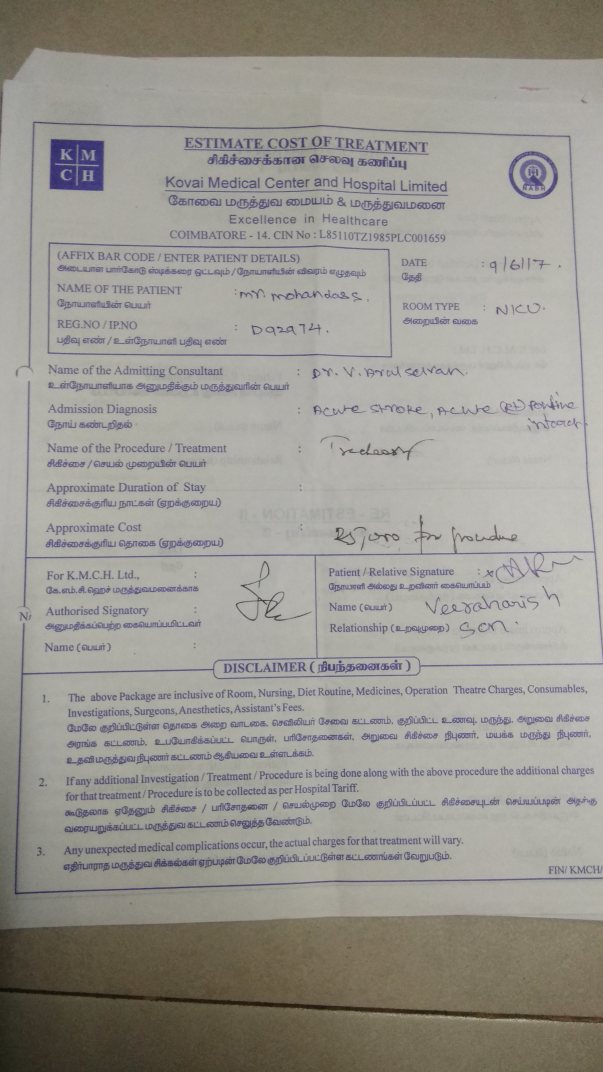 K M
C H
ESTIMATE COST OF TREATMENT
சிகிச்சைக்கான செலவு கணிப்பு
Kovai Medical Center and Hospital Limited
கோவை மருத்துவ மையம் & மருத்துவமனை
Excellence in Healthcare
COIMBATORE - 14. CIN No : L85110TZ1985PLC001659
NABH
(AFFIX BAR CODE / ENTER PATIENT DETAILS)
அடையாள பார்கோடு ஸ்டிக்கரை ஒட்டவும் / நோயாளியின் விவரம் எழுதவும்
NAME OF THE PATIENT : Mr. Mohandass.
நோயாளியின் பெயர்
REG.NO / IP.NO : D92974.
பதிவு எண் / உள்நோயாளி பதிவு எண்
DATE : 9/6/17.
தேதி
ROOM TYPE : NICU.
அறையின் வகை
Name of the Admitting Consultant : Dr. V. Arulselvan.
உள்நோயாளியாக அனுமதிக்கும் மருத்துவரின் பெயர்
Admission Diagnosis : Acute Stroke, Acute (Rt) Pontine
நோய் கண்டறிதல் infarct.
Name of the Procedure / Treatment :
சிகிச்சை / செயல் முறையின் பெயர்
Approximate Duration of Stay :
சிகிச்சைக்குரிய நாட்கள் (ஏறக்குறைய)
Approximate Cost : 25,000 for procedure
சிகிச்சைக்குரிய தொகை (ஏறக்குறைய)
For K.M.C.H. Ltd., :
கே.எம்.சி.ஹெச் மருத்துவமனைக்காக
Authorised Signatory
அனுமதிக்கப்பெற்ற கையொப்பமிட்டவர்
Name (பெயர்) :
Patient / Relative Signature : x
நோயாளி அல்லது உறவினர் கையொப்பம்
Name (பெயர்) : Veeraharish
Relationship (உறவுமுறை) : Son.
DISCLAIMER ( நிபந்தனைகள் )
1. The above Package are inclusive of Room, Nursing, Diet Routine, Medicines, Operation Theatre Charges, Consumables,
Investigations, Surgeons, Anesthetics, Assistant's Fees.
மேலே குறிப்பிட்டுள்ள தொகை அறை வாடகை, செவிலியர் சேவை கட்டணம், குறிப்பிட்ட உணவு, மருந்து, அறுவை சிகிச்சை
அரங்க கட்டணம், உபயோகிக்கப்பட்ட பொருள், பரிசோதனைகள், அறுவை சிகிச்சை நிபுணர், மயக்க மருந்து நிபுணர்,
உதவி மருத்துவ நிபுணர் கட்டணம் ஆகியவை உள்ளடக்கம்.
2. If any additional Investigation / Treatment / Procedure is being done along with the above procedure the additional charges
for that treatment / Procedure is to be collected as per Hospital Tariff.
கூடுதலாக ஏதேனும் சிகிச்சை / பரிசோதனை / செயல்முறை மேலே குறிப்பிடப்பட்ட சிகிச்சையுடன் செய்யப்படின் அதற்கு
வரையறுக்கப்பட்ட மருத்துவ கட்டணம் செலுத்த வேண்டும்.
3. Any unexpected medical complications occur, the actual charges for that treatment will vary.
எதிர்பாராத மருத்துவ சிக்கல்கள் ஏற்படின் மேலே குறிப்பிடப்பட்டுள்ள கட்டணங்கள் வேறுபடும்.
FIN/ KMCH/